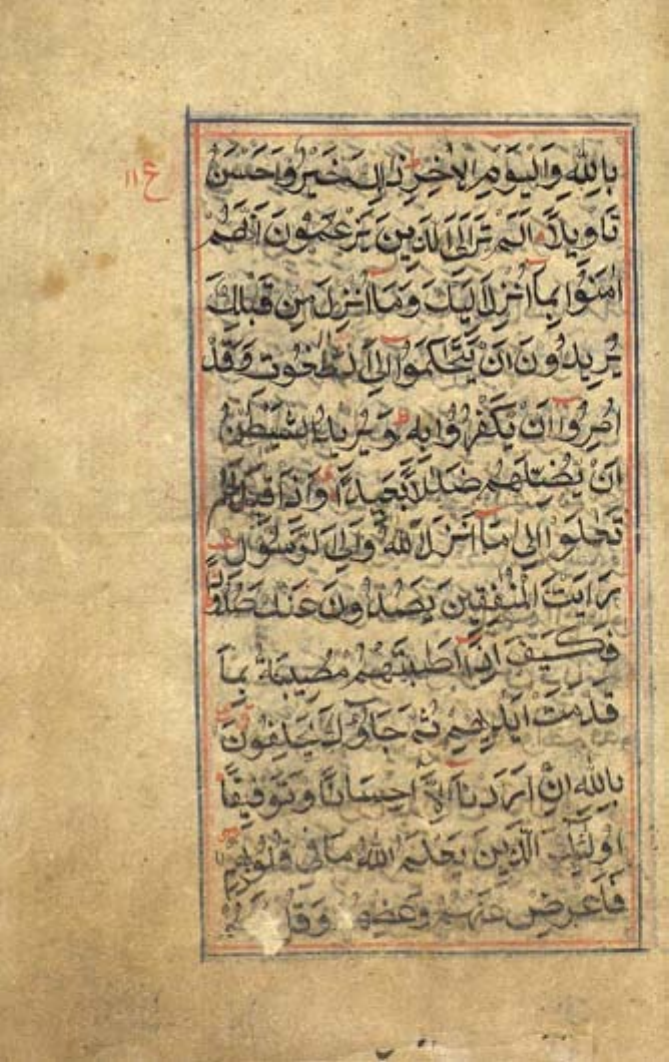 بِاللهِ وَالْيَوْمِ الْاٰخِرِ ذٰلِكَ خَيْرٌ وَاَحْسَنُ
ع ١١
تَاْوِيلًا اَلَمْ تَرَ اِلَى الَّذِينَ يَزْعُمُونَ اَنَّهُمْ
اٰمَنُوا بِمَا اُنْزِلَ اِلَيْكَ وَمَا اُنْزِلَ مِنْ قَبْلِكَ
يُرِيدُونَ اَنْ يَتَحَاكَمُوا اِلَى الطَّاغُوتِ وَقَدْ
اُمِرُوا اَنْ يَكْفُرُوا بِهٖ وَيُرِيدُ الشَّيْطٰنُ
اَنْ يُضِلَّهُمْ ضَلٰلًا بَعِيدًا وَاِذَا قِيلَ لَهُمْ
تَعَالَوْا اِلٰى مَا اَنْزَلَ اللهُ وَاِلَى الرَّسُولِ
رَاَيْتَ الْمُنٰفِقِينَ يَصُدُّونَ عَنْكَ صُدُودًا
فَكَيْفَ اِذَا اَصَابَتْهُمْ مُصِيبَةٌ بِمَا
قَدَّمَتْ اَيْدِيهِمْ ثُمَّ جَاؤُكَ يَحْلِفُونَ
بِاللهِ اِنْ اَرَدْنَا اِلَّا اِحْسَانًا وَتَوْفِيقًا
اُولٰئِكَ الَّذِينَ يَعْلَمُ اللهُ مَا فِي قُلُوبِهِمْ
فَاَعْرِضْ عَنْهُمْ وَعِظْهُمْ وَقُلْ